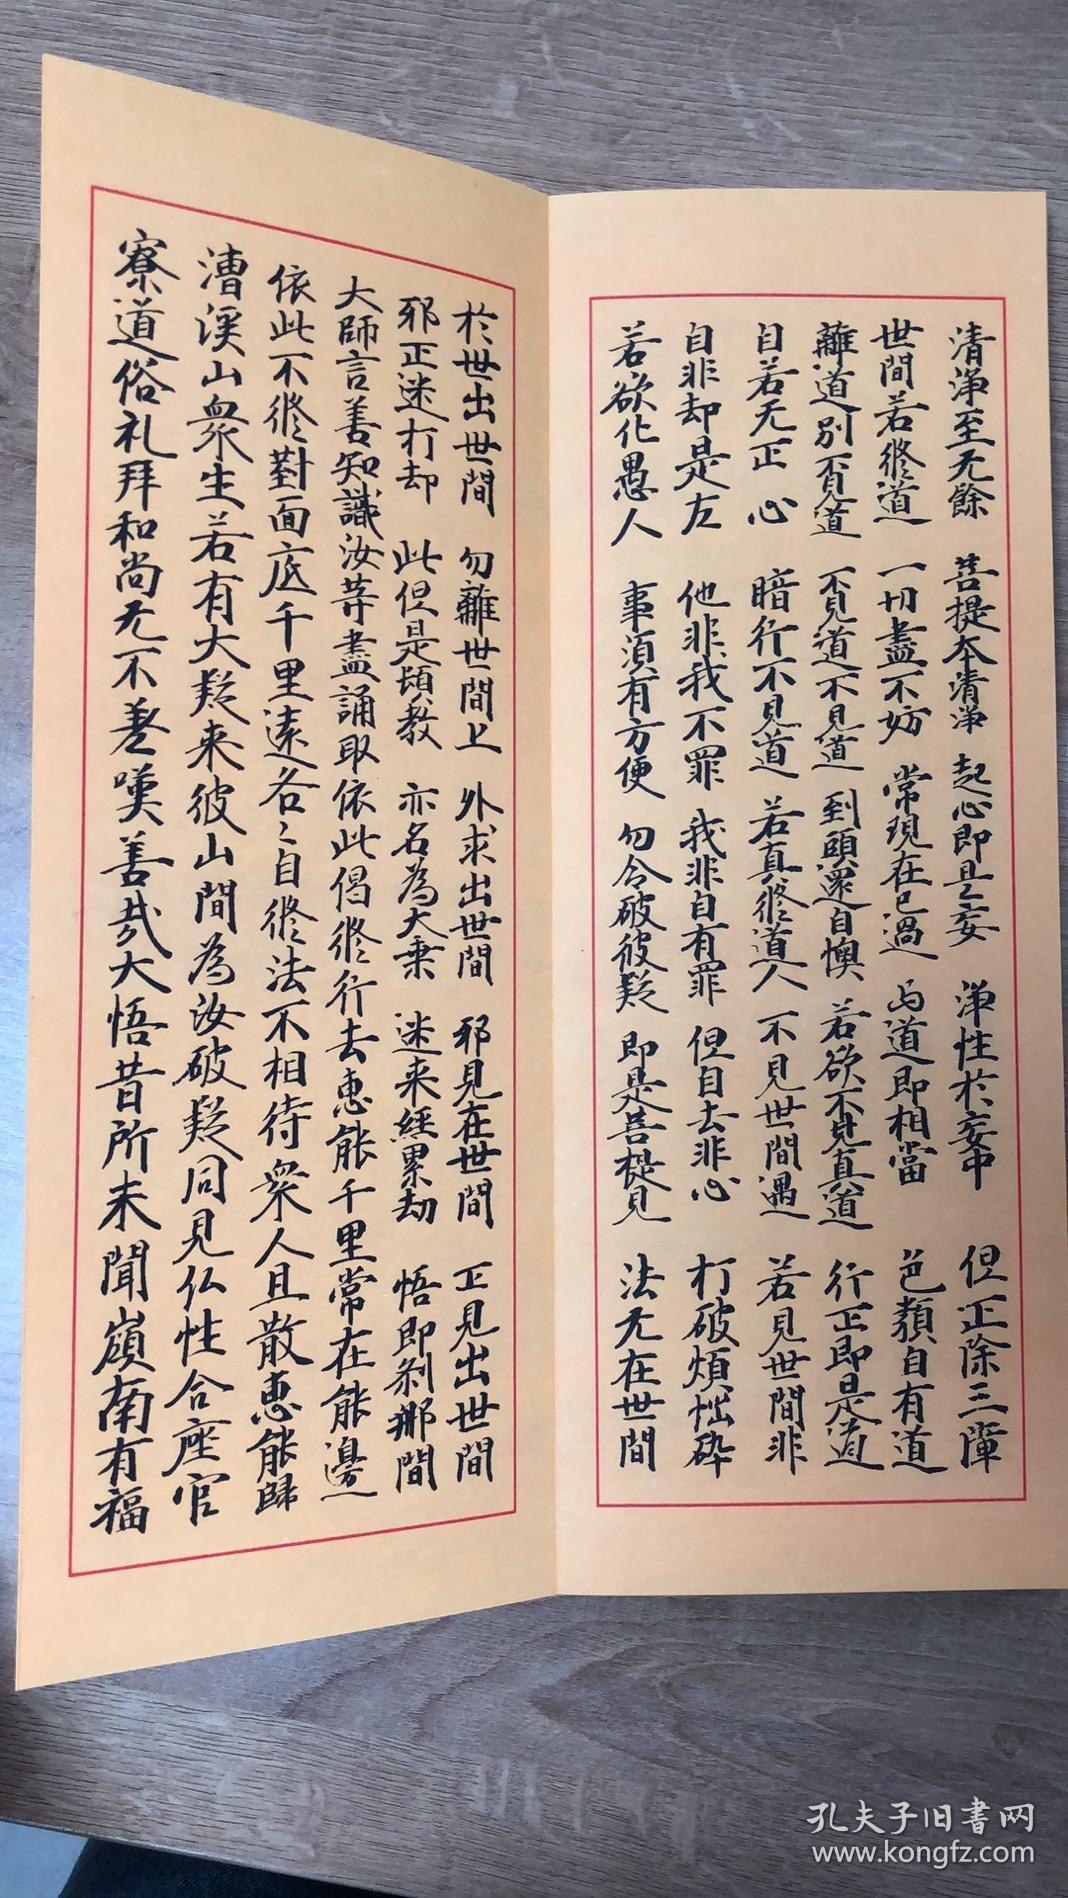 清淨至无餘 菩提本清淨 起心即是妄 淨性於妄中 但正除三障
世間若修道 一切盡不妨 常現在已過 与道即相當 色類自有道
離道別覓道 覓道不見道 到頭還自懊 若欲覓真道 行正即是道
自若无正心 暗行不見道 若真修道人 不見世間過 若見世間非
自非却是左 他非我不罪 我非自有罪 但自去非心 打破煩惱碎
若欲化愚人 事須有方便 勿令破彼疑 即是菩提見 法无在世間
於世出世間 勿離世間上 外求出世間 邪見在世間 正見出世間
邪正迷打却 此但是頓教 亦名為大乘 迷来經累劫 悟即剎那間
大師言善知識汝等盡誦取依此偈修行去惠能千里常在能邊
依此不修對面底千里遠各〻自修法不相待眾人且散惠能歸
漕溪山眾生若有大疑来彼山間為汝破疑同見仏性合座官
寮道俗礼拜和尚无不嗟嘆善哉大悟昔所未聞嶺南有福
孔夫子旧書网
www.kongfz.com